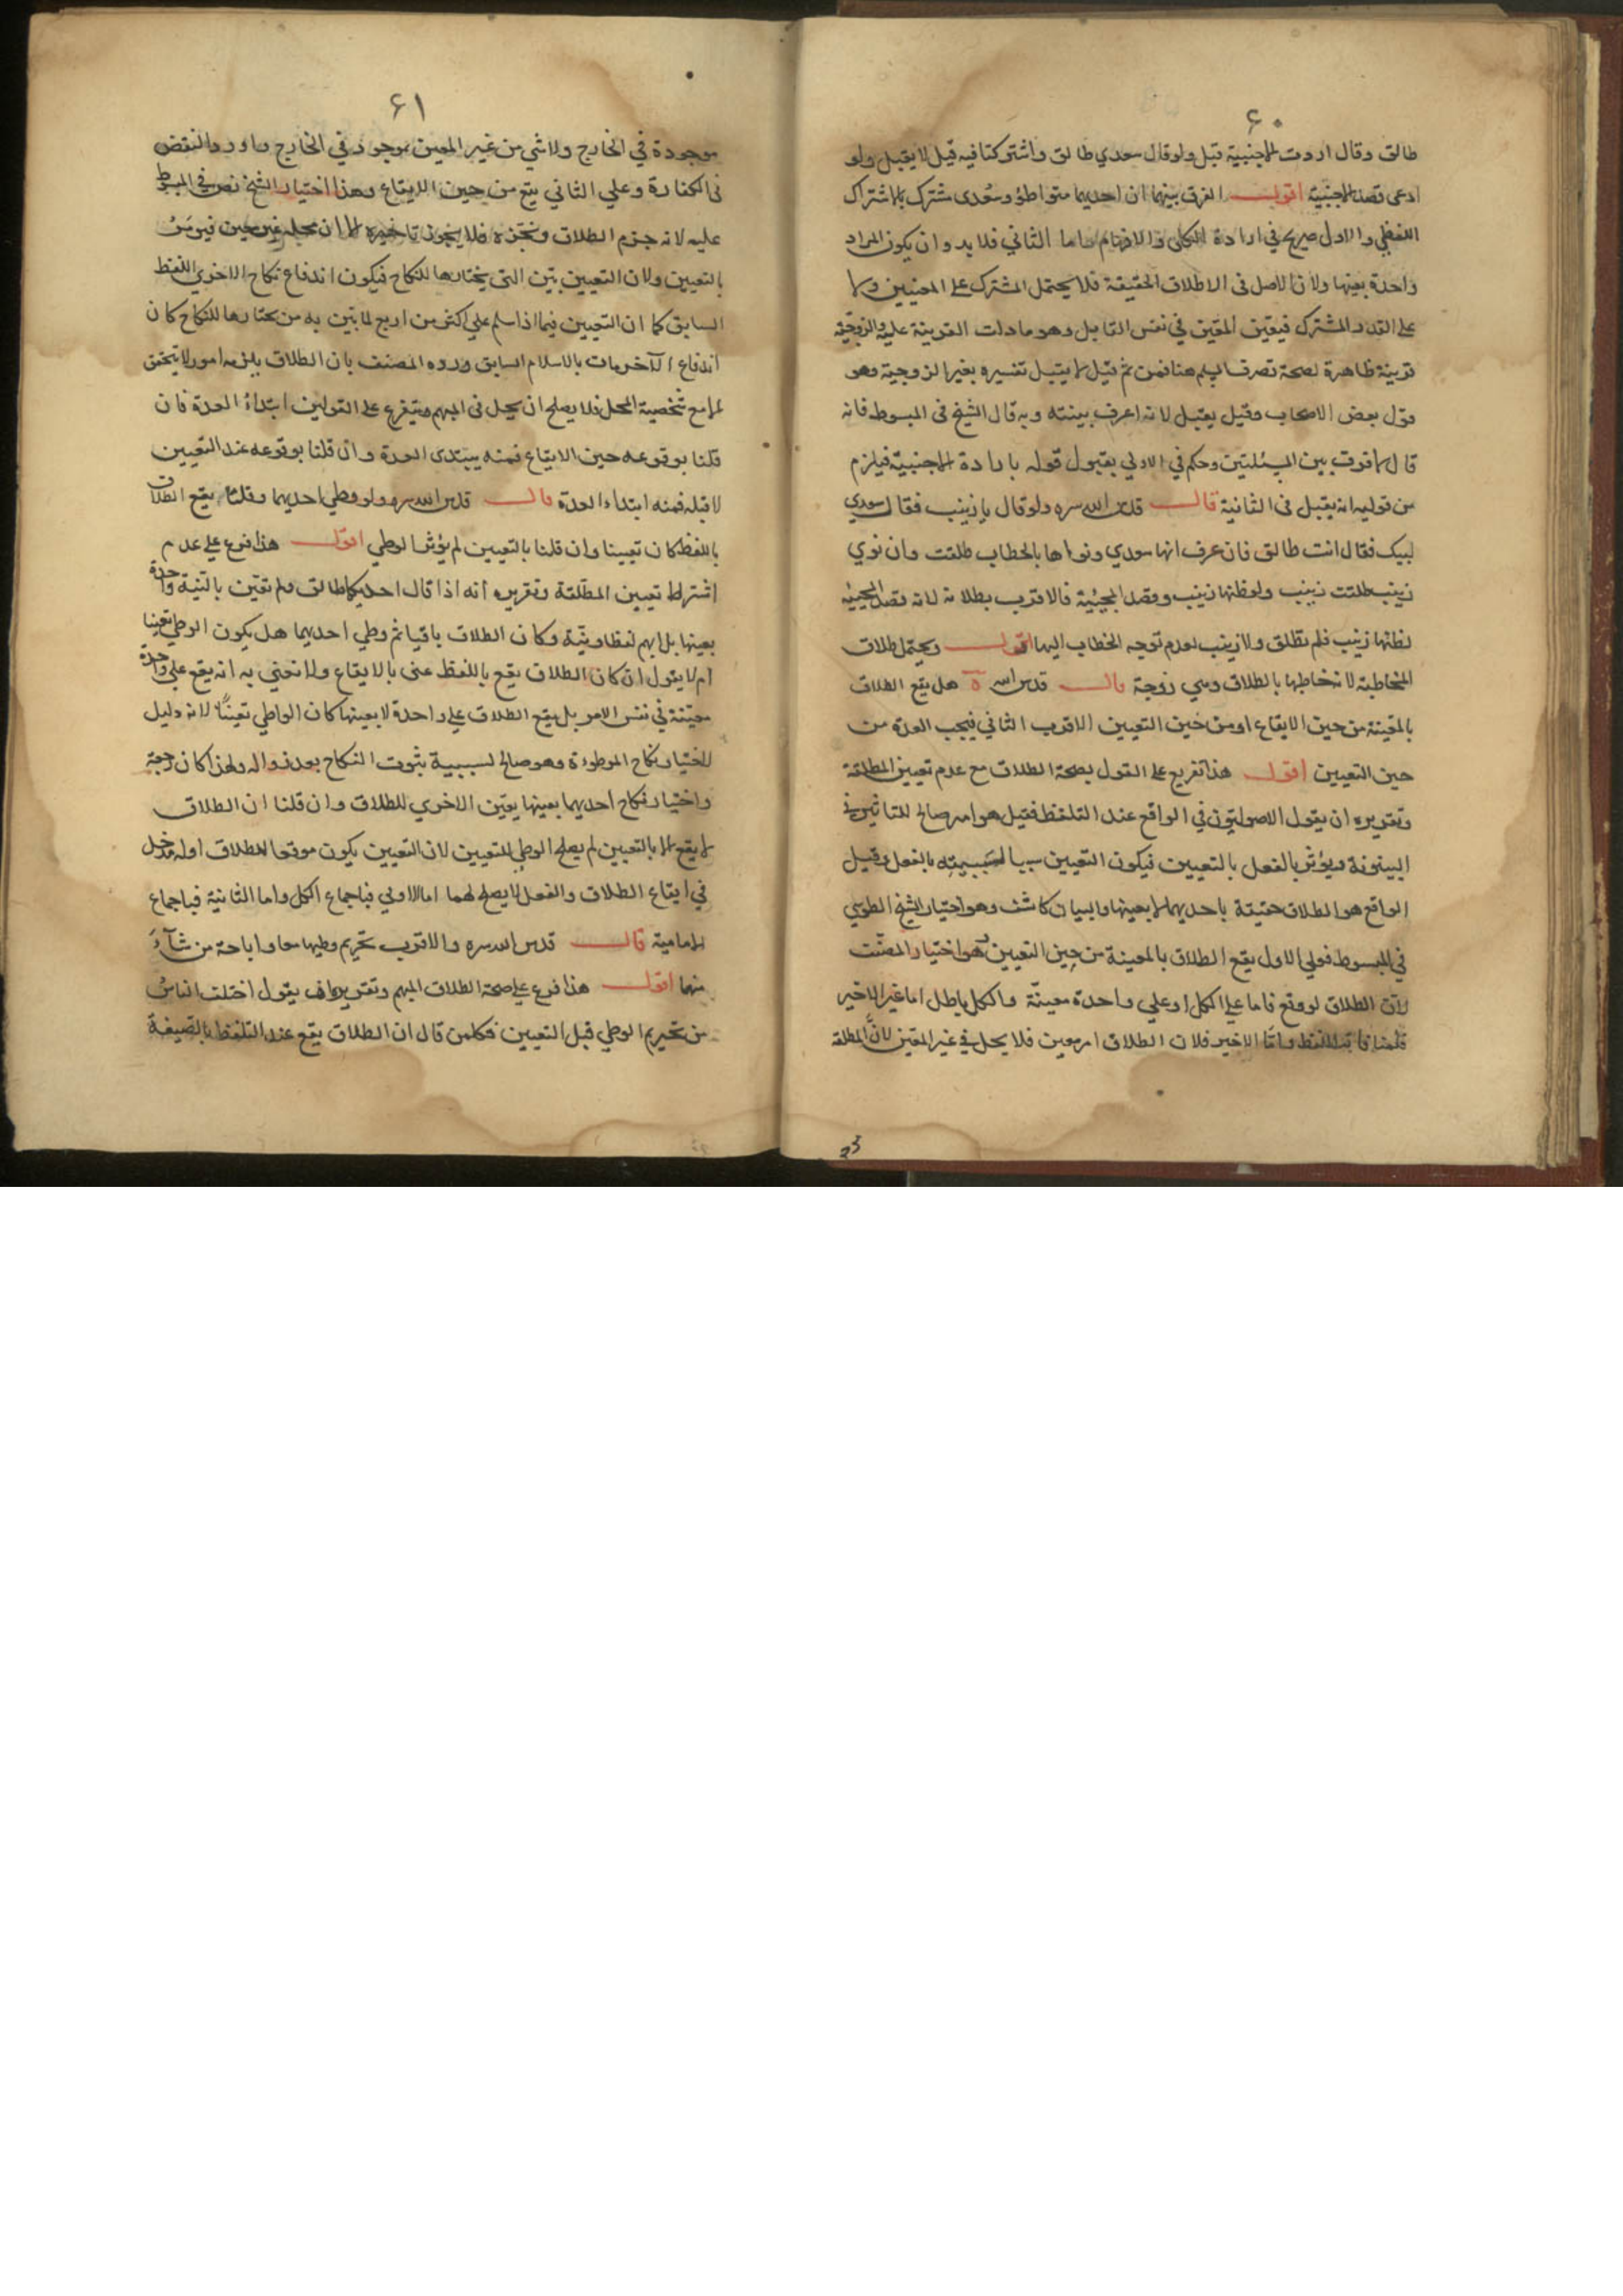 ٦٠
طالق وقال اردت الاجنبية قبل ولو قال سعدي طالق واشتركتا فيه قيل لا يقبل ولو
ادعى قصد الاجنبية اقول الفرق بينهما ان احديهما متواطؤ وسعدى مشترك بالاشتراك
اللفظي والاول صريح في ارادة الكلى والافهام واما الثاني فلا بد وان يكون المراد
واحدة بعينها ولان الاصل فى الاطلاق الحقيقة فلا يحتمل المشترك على المعنيين ولا
على القدر المشترك فيعين المعين في نفس القايل وهو ما دلت القرينة عليه والزوجية
قرينة ظاهرة لصحة تصرف المسلم هنا فمن ثم قيل لا يقبل تفسيره بغير الزوجية وهو
قول بعض الاصحاب وقيل يقبل لانه اعرف بنيته وبه قال الشيخ فى المبسوط فانه
قال لا فرق بين المسئلتين وحكم في الاولي بقبول قوله بارادة الاجنبية فيلزم
من قوليه انه يقبل فى الثانية قال قدس الله سره ولو قال يا زينب فقال سعدي
لبيك فقال انت طالق فان عرف انها سعدي ونواها بالخطاب طلقت وان نوي
زينب طلقت زينب ولو ظنها زينب وقصد المجيبة فالاقرب بطلانه لانه قصد المجيبة
لظنها زينب فلم تطلق ولا زينب لعدم توجه الخطاب اليها اقول ويحتمل طلاق
المخاطبة لانه خاطبها بالطلاق وهي زوجة قال قدس الله سره هل يقع الطلاق
بالمعينة من حين الايقاع او من حين التعيين الاقرب الثاني فيجب العدة من
حين التعيين اقول هذا تفريع على القول بصحة الطلاق مع عدم تعيين المطلقة
وتقريره ان يقول الاصوليون في الواقع عند التلفظ فقيل هو امر صالح للتاثير في
البينونة ويؤثر بالفعل بالتعيين فيكون التعيين سببا لسببيته بالفعل وقيل
الواقع هو الطلاق حقيقة باحديهما لا بعينها والبيان كاشف وهو اختيار الشيخ الطوسي
في المبسوط فعلي الاول يقع الطلاق بالمعينة من حين التعيين وهو اختيار المصنف
لان الطلاق لو وقع فاما على الكل او على واحدة معينة والكل باطل اما غير الاخير
فلمنافاته اللفظ واما الاخير فلان الطلاق امر معين فلا يحل في غير المعين لان المطلقة
٦١
موجودة في الخارج ولا شي من غير المعين بموجود في الخارج واورد النقض
فى الكفارة وعلي الثاني يقع من حين الايقاع وهذا اختيار الشيخ نص في المبسوط
عليه لانه جزم الطلاق ونجزه فلا يجوز تاخيره الا ان محله غير معين فيؤمر
بالتعيين ولان التعيين يبين التى يختارها للنكاح فيكون اندفاع نكاح الاخري باللفظ
السابق كما ان التعيين فيما اذا اسلم علي اكثر من اربع لما تبين به من يختارها للنكاح كان
اندفاع الآخرمات بالاسلام السابق ورده المصنف بان الطلاق يلزمه امور لا تتحقق
الا مع شخصية المحل فلا يصلح ان يحل فى المبهم ويتفرع على القولين ابتداء العدة فان
قلنا بوقوعه حين الايقاع فمنه يبتدى العدة وان قلنا بوقوعه عند التعيين
لا قبله فمنه ابتداء العدة قال قدس الله سره ولو وطي احديهما وقلنا يقع الطلاق
باللفظ كان تعيينا وان قلنا بالتعيين لم يؤثر الوطي اقول هذا فرع على عدم
اشتراط تعيين المطلقة وتقريره انه اذا قال احديكما طالق ولم تعين بالنية واحدة
بعينها بل ابهم لفظا ونية وكان الطلاق باقيا ثم وطي احديهما هل يكون الوطي تعيينا
ام لا يقول ان كان الطلاق يقع باللفظ عنى بالايقاع ولا نعني به انه يقع علي واحدة
معينة في نفس الامر بل يقع الطلاق على واحدة لا بعينها كان الواطي تعيينا لانه دليل
لاختيار نكاح الموطوءة وهو صالح لسببية ثبوت النكاح بعد زواله ولهذا كان رجعة
واختيار نكاح احديهما بعينها يعين الاخري للطلاق وان قلنا ان الطلاق
لا يقع الا بالتعيين لم يصلح الوطي للتعيين لان التعيين يكون موقعا للطلاق اوله مدخل
في ايقاع الطلاق والفعل لا يصلح لهما اما الاولي فباجماع الكل واما الثانية فباجماع
الامامية قال قدس الله سره والاقرب تحريم وطيهما معا واباحة من شآء
منهما اقول هذا فرع على صحة الطلاق المبهم وتقريره ان يقول اختلف الناس
من تحريم الوطي قبل التعيين فكل من قال ان الطلاق يقع عند التلفظ بالصيغة